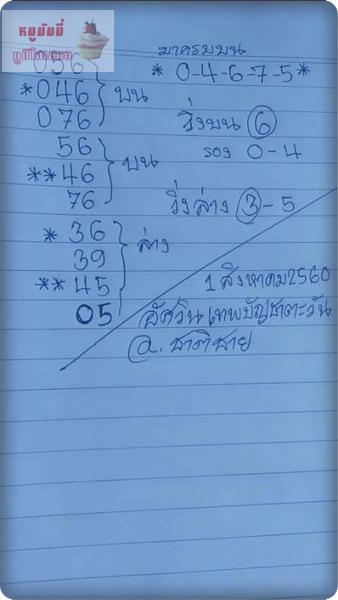 หมูมัมมี่
มาครบบน
* 0-4-6-7-5 *
056
*046 } บน
076
วิ่งบน 6
รอง 0-4
56
**46 } บน
76
วิ่งล่าง 3-5
* 36
39
**45 } ล่าง
05
1 สิงหาคม 2560
อัศวิน เทพบัญชาตะวัน
@. ชาติชาย